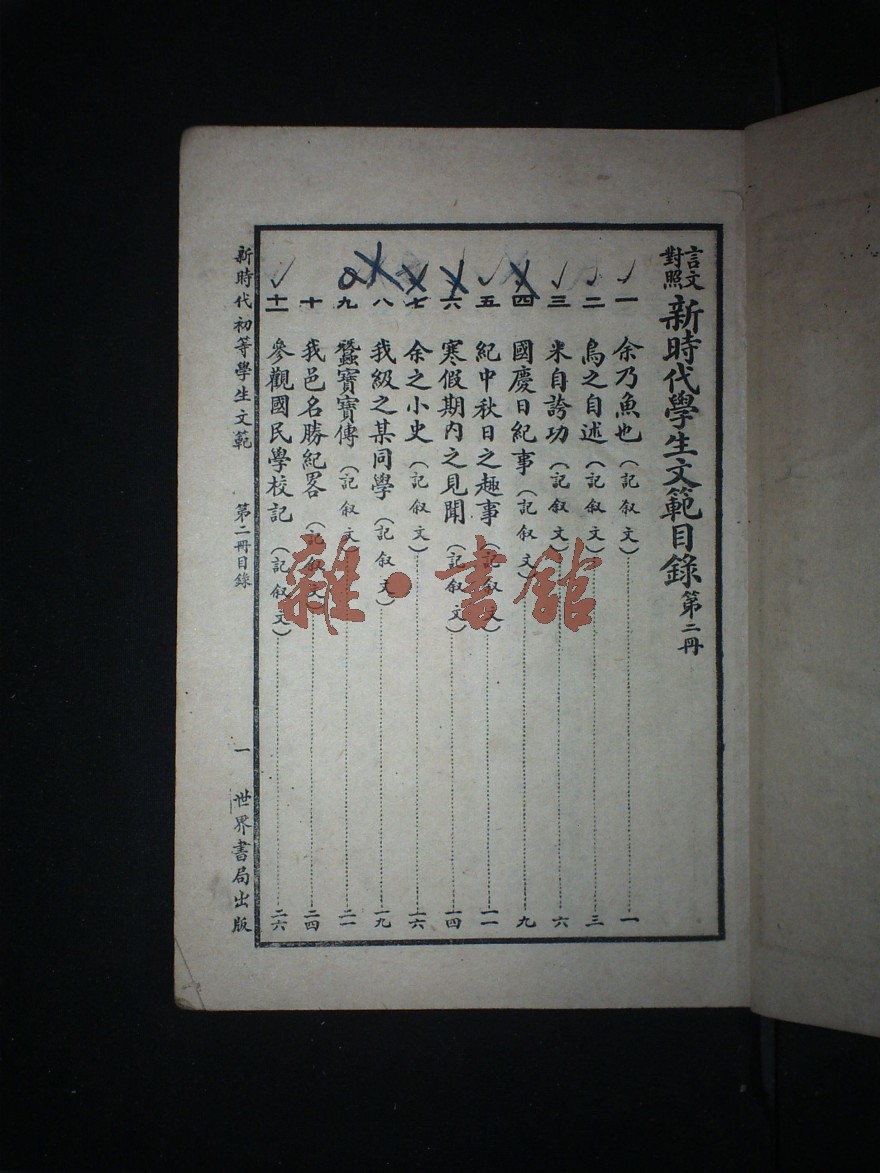 言文對照 新時代學生文範目錄 第二冊
一 余乃魚也(記叙文) 一
二 烏之自述(記叙文) 三
三 米自誇功(記叙文) 六
四 國慶日紀事(記叙文) 九
五 紀中秋日之趣事(記叙文) 一二
六 寒假期內之見聞(記叙文) 一四
七 余之小史(記叙文) 一六
八 我級之某同學(記叙文) 一九
九 蠶寶寶傳(記叙文) 二一
十 我邑名勝紀畧(記叙文) 二四
十一 參觀國民學校記(記叙文) 二六
新時代初等學生文範 第二冊目錄 一 世界書局出版
雜·書館